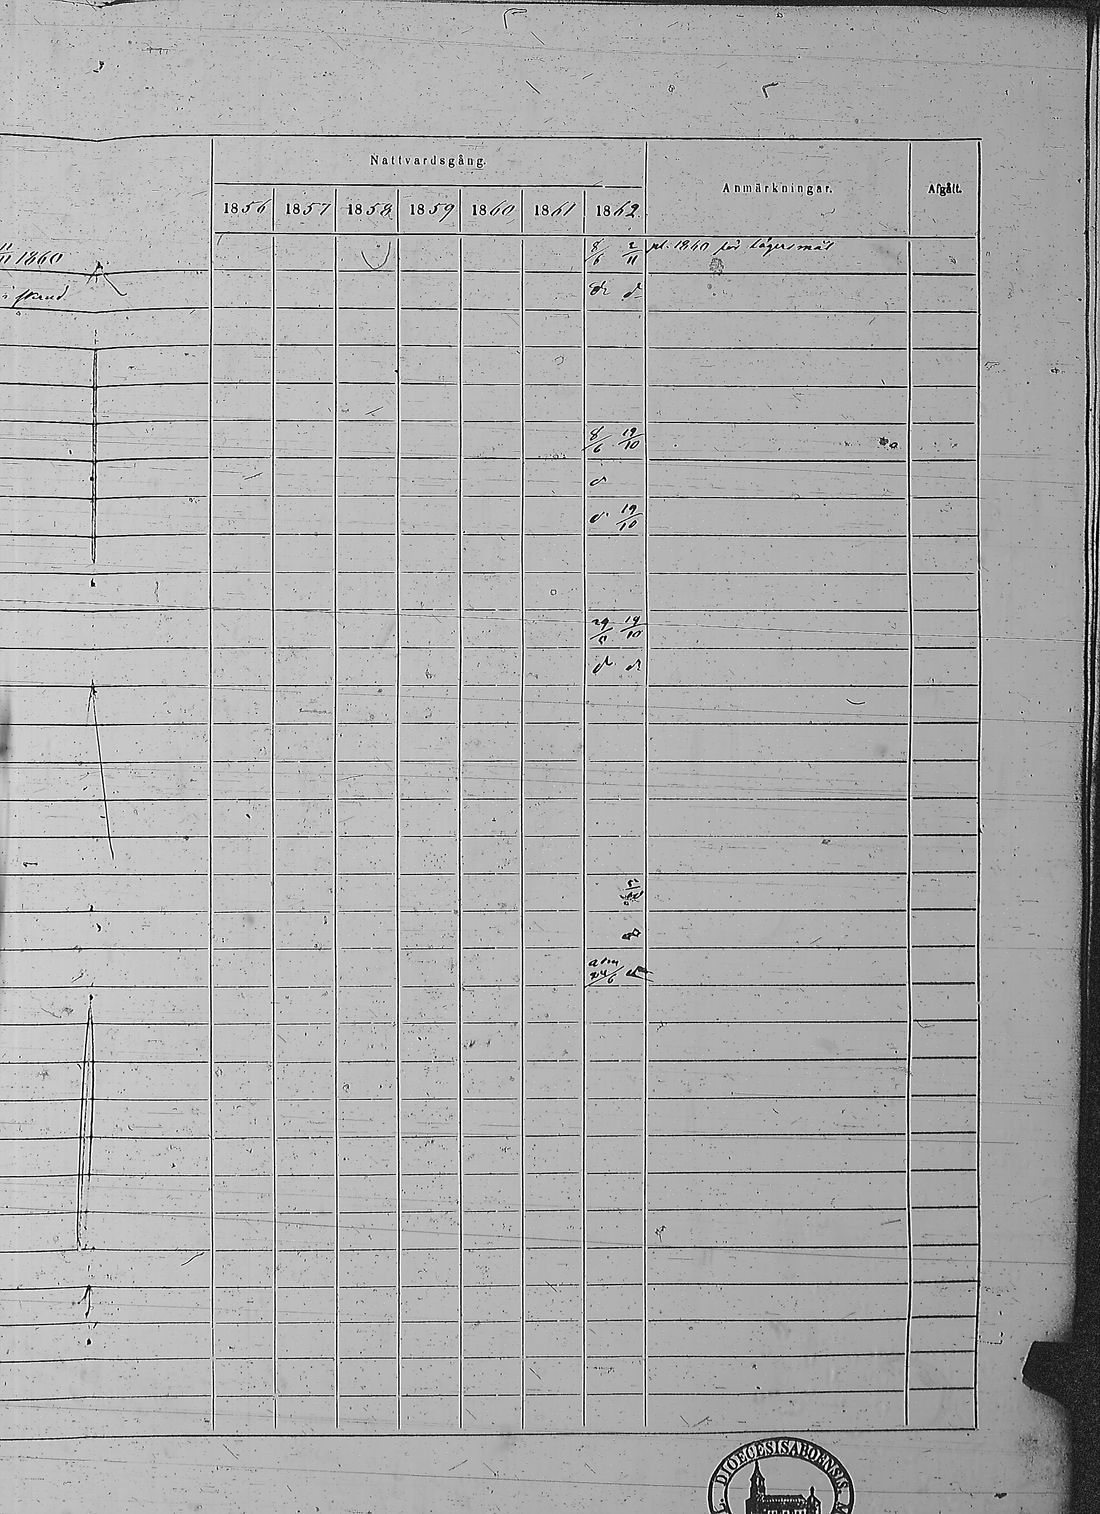 Nattvardsgång.
Anmärkningar.
Afgått.
1856 1857 1858 1859 1860 1861 1862
11/11 1860
8/6 2/11 pl. 1860 för lägersmål
i
d d
8/6 19/10
d
d 19/10
29/5 19/10
d d
d
24/6
DIOECESIS ABOENSIS